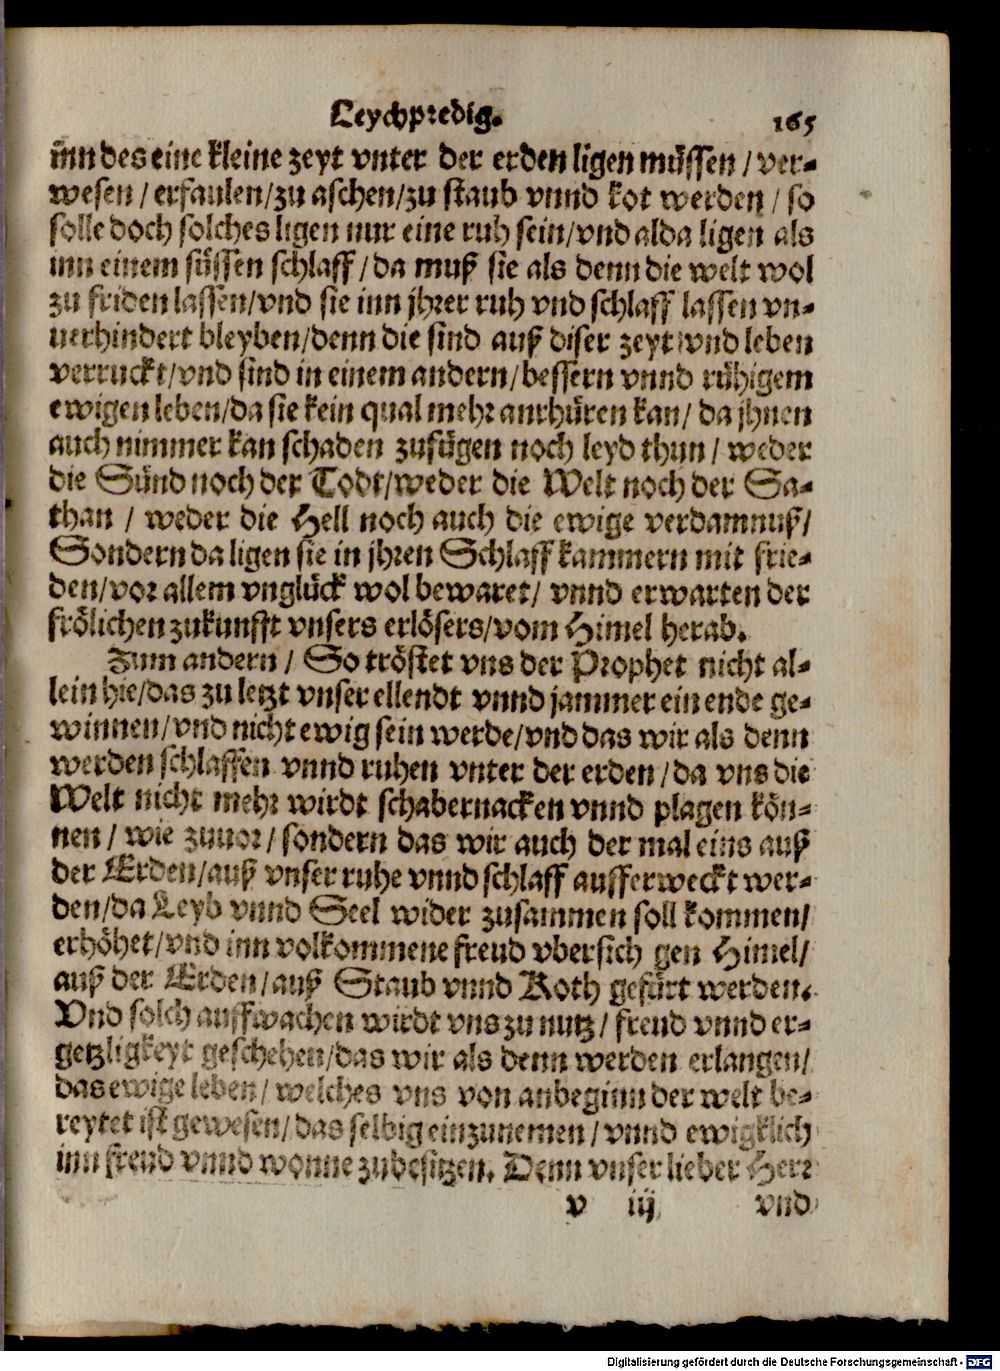 Leychpredig. 165
inn des eine kleine zeyt vnter der erden ligen müssen / ver-
wesen / erfaulen/zu aschen/zu staub vnnd kot werden / so
solle doch solches ligen nur eine ruh sein/vnd alda ligen als
inn einem süssen schlaff / da muß sie als denn die welt wol
zu friden lassen/vnd sie inn jhrer ruh vnd schlaff lassen vn-
uerhindert bleyben/denn die sind auß diser zeyt vnd leben
verruckt/vnd sind in einem andern/bessern vnnd rühigem
ewigen leben/da sie kein qual mehr anrhüren kan/ da jhnen
auch nimmer kan schaden zufügen noch leyd thun / weder
die Sünd noch der Todt/weder die Welt noch der Sa-
than / weder die Hell noch auch die ewige verdamnuß/
Sondern da ligen sie in jhren Schlaff kammern mit frie-
den/vor allem vnglück wol bewaret/ vnnd erwarten der
frölichen zukunfft vnsers erlösers/vom Himel herab.
Zum andern / So tröstet vns der Prophet nicht al-
lein hie/das zu letzt vnser ellendt vnnd jammer ein ende ge-
winnen/vnd nicht ewig sein werde/vnd das wir als denn
werden schlaffen vnnd ruhen vnter der erden / da vns die
Welt nicht mehr wirdt schabernacken vnnd plagen kön-
nen / wie zuuor / sondern das wir auch der mal eins auß
der Erden/auß vnser ruhe vnnd schlaff aufferweckt wer-
den/da Leyb vnnd Seel wider zusammen soll kommen/
erhöhet/vnd inn volkommene freud vbersich gen Himel/
auß der Erden/auß Staub vnnd Koth gefürt werden.
Vnd solch auffwachen wirdt vns zu nutz / freud vnnd er-
getzligkeyt geschehen/das wir als denn werden erlangen/
das ewige leben/ welches vns von anbeginn der welt be-
reytet ist gewesen/ das selbig einzunemen / vnnd ewigklich
inn freud vnnd wonne zubesitzen. Denn vnser lieber Herr
v iij vnd
Digitalisierung gefördert durch die Deutsche Forschungsgemeinschaft - DFG